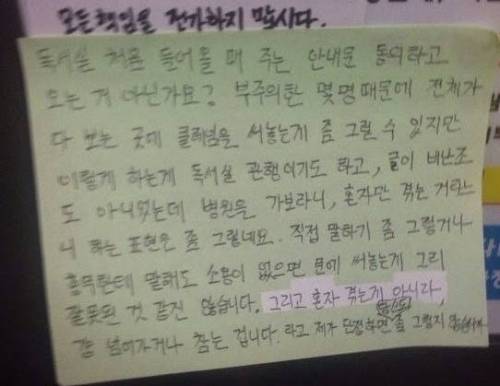 모든 책임을 전가하지 맙시다.
독서실 처음 들어올 때 주는 안내문 동의하고
오는 거 아닌가요? 부주의한 몇명 때문에 전체가
다 보는 곳에 클레임을 써놓는게 좀 그럴 수 있지만
이렇게 하는게 독서실 관행이기도 하고, 글이 비난조
도 아니었는데 병원을 가보라니, 혼자만 겪는 거라느
니 하는 표현은 좀 그렇네요. 직접 말하기 좀 그렇거나
총무한테 말해도 소용이 없으면 문에 써놓는게 그리
잘못된 것 같진 않습니다. 그리고 혼자 겪는게 아니라,
걍 넘어가거나 참는 겁니다. 라고 제가 단정하면 좀 그렇지 않습니까